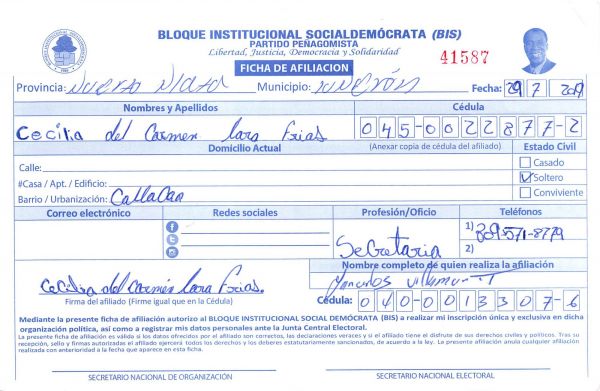 BLOQUE INSTITUCIONAL SOCIALDEMÓCRATA (BIS)
PARTIDO PEÑAGOMISTA
Libertad, Justicia, Democracia y Solidaridad
41587
FICHA DE AFILIACION
Provincia: Municipio: Fecha: 29 7 2019
Nombres y Apellidos Cédula
Cecilia del Carmen Lara Frias 045-0022877-2
Domicilio Actual (Anexar copia de cédula del afiliado) Estado Civil
Calle: Casado
#Casa / Apt. / Edificio: Soltero
Barrio / Urbanización: Conviviente
Correo electrónico Redes sociales Profesión/Oficio Teléfonos
1) 809-571-8779
Secretaria 2)
Nombre completo de quien realiza la afiliación
Cecilia del Carmen Lara Frias.
Firma del afiliado (Firme igual que en la Cédula) Cédula: 040-0013307-6
Mediante la presente ficha de afiliación autorizo al BLOQUE INSTITUCIONAL SOCIAL DEMÓCRATA (BIS) a realizar mi inscripción única y exclusiva en dicha
organización política, así como a registrar mis datos personales ante la Junta Central Electoral.
La presente ficha de afiliación es válida si los datos ofrecidos por el afiliado son correctos, las declaraciones veraces y si el afiliado tiene el disfrute de sus derechos civiles y políticos. Tras su
recepción, sello y firmas autorizadas el afiliado ejercerá todos los derechos y los deberes estatutariamente sancionados, de acuerdo a la ley. La presente afiliación anula cualquier afiliación
realizada con anterioridad a la fecha que aparece en esta ficha.
SECRETARIO NACIONAL DE ORGANIZACIÓN SECRETARIO NACIONAL ELECTORAL